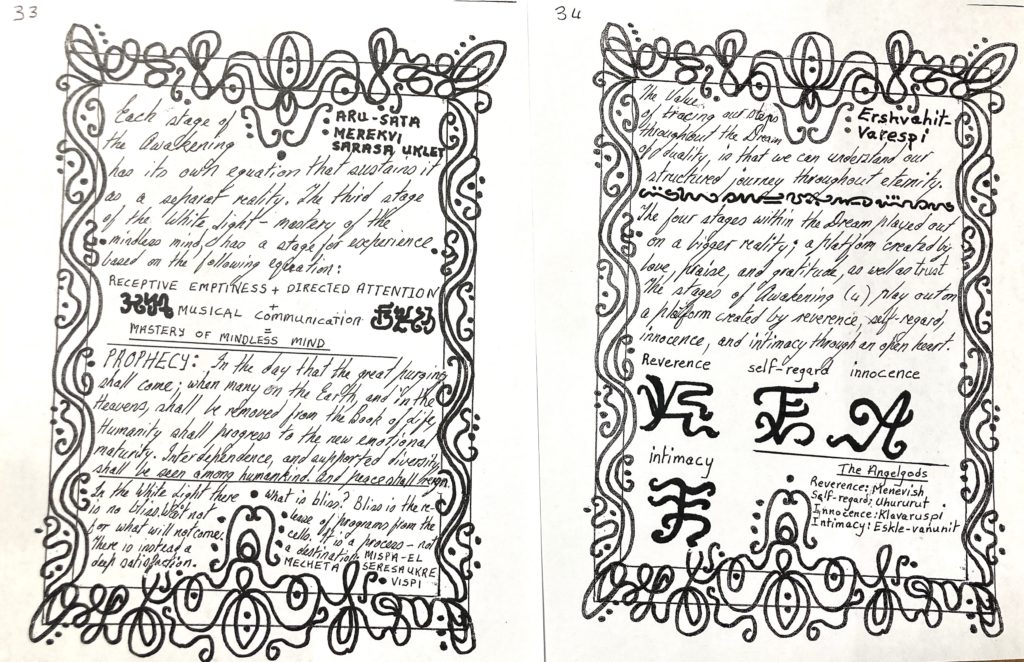 33
Each stage of
the Awakening
ARU-SATA
MEREKVI
SARASA UKLET
has its own equation that sustains it
as a separat reality. The third stage
of the White Light – mastery of the
mindless mind, has a stage for experience
based on the following equation:
RECEPTIVE EMPTINESS + DIRECTED ATTENTION
+
MUSICAL COMMUNICATION
=
MASTERY OF MINDLESS MIND
PROPHECY: In the day that the great purging
shall come; when many on the Earth, and in the
Heavens, shall be removed from the Book of Life,
Humanity shall progress to the new emotional
maturity. Interdependence, and supported diversity,
shall be seen among humankind. And peace shall reign.
In the White Light there
is no bliss, what not
for what will not come.
There is instead a
deep satisfaction.
What is bliss? Bliss is the re-
lease of programs from the
cells. It is a process – not
a destination.
MISPA-EL
MELCHETA SERESAUKRE
VISPI
34
The Value
of tracing our steps
throughout the Dream
of duality, is that we can understand our
structured journey throughout eternity.
Ershvahit-
Varespi
The four stages within the Dream played out
on a bigger reality; a platform created by
love, praise, and gratitude, as well as trust
The stages of Awakening (4) play out on
a platform created by reverence, self-regard,
innocence, and intimacy through an open heart.
Reverence self-regard innocence
intimacy
The Angelgods
Reverence: Menevish
Self-regard: Uhururut
Innocence: Klavaruspi
Intimacy: Eskle-vanunit